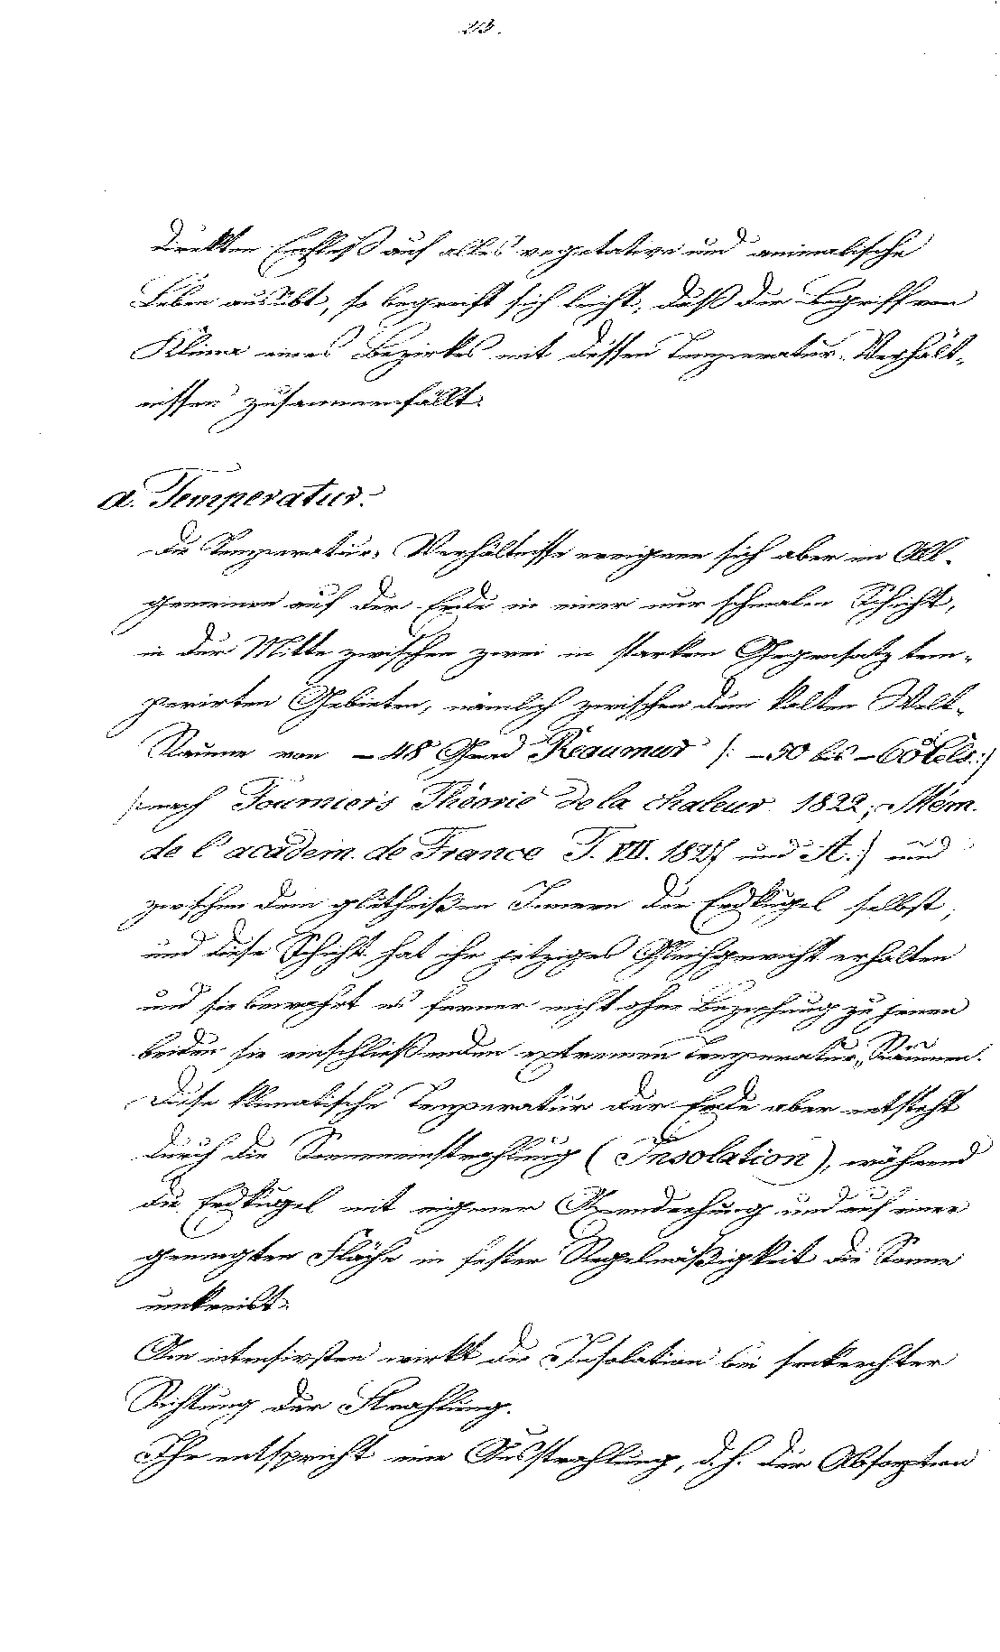 23.
direkten Einfluß auf alles vegetative und animalische
Leben ausübt, so begreift sich leicht, daß der Begriff von
Klima eines Bezirkes mit dessen Temperatur-Verhält-
nissen zusammenfällt.
a. Temperatur.
Die Temperatur-Verhältnisse ereignen sich aber im All-
gemeinen auf der Erde in einer nur schmalen Schicht,
in der Mitte zwischen zwei in starkem Gegensatz tem-
perirten Gebieten, nämlich zwischen dem kalten Welt-
Raume von -48 Grad Réaumur /: -50 bis -60° Cels. :/
/: nach Fourniers Théorie de la chaleur 1822; Mém.
de l'académ. de France T. VII. 1827 und A. :/ und
zwischen dem glutheißen Innern der Erdkugel selbst;
und diese Schicht hat ihr jetziges Gleichgewicht erhalten
und sie bewahrt es ferner nicht ohne Beziehung zu jenen
beiden sie einschließenden extremen Temperatur-Räumen.
Diese klimatische Temperatur der Erde aber entsteht
durch die Sonneneinstrahlung (Insolation), während
die Erdkugel mit eigener Axendrehung und auf einer
geneigten Fläche in fester Regelmäßigkeit die Sonne
umkreist.
Am intensivsten wirkt die Insolation bei senkrechter
Richtung der Strahlung.
Ihr entspricht eine Ausstrahlung, d. h. der Absorption